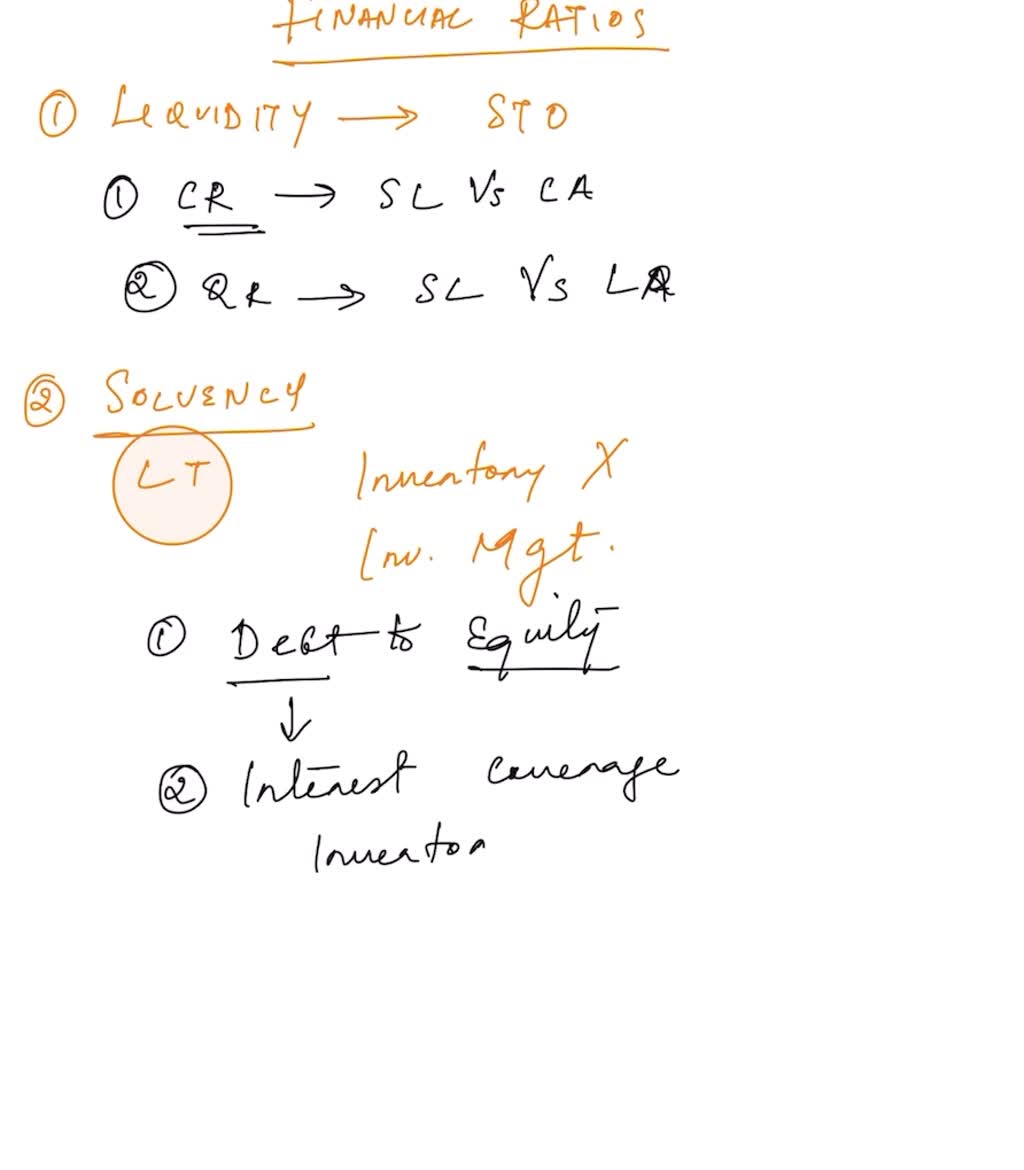 FINANCIAL RATIOS
① LIQUIDITY → STO
① CR → SL Vs CA
② QR → SL Vs LA
② SOLVENCY
LT
Inventory X
Inv. Mgt.
① Debt to Equity
↓
② Interest Coverage
Inventor